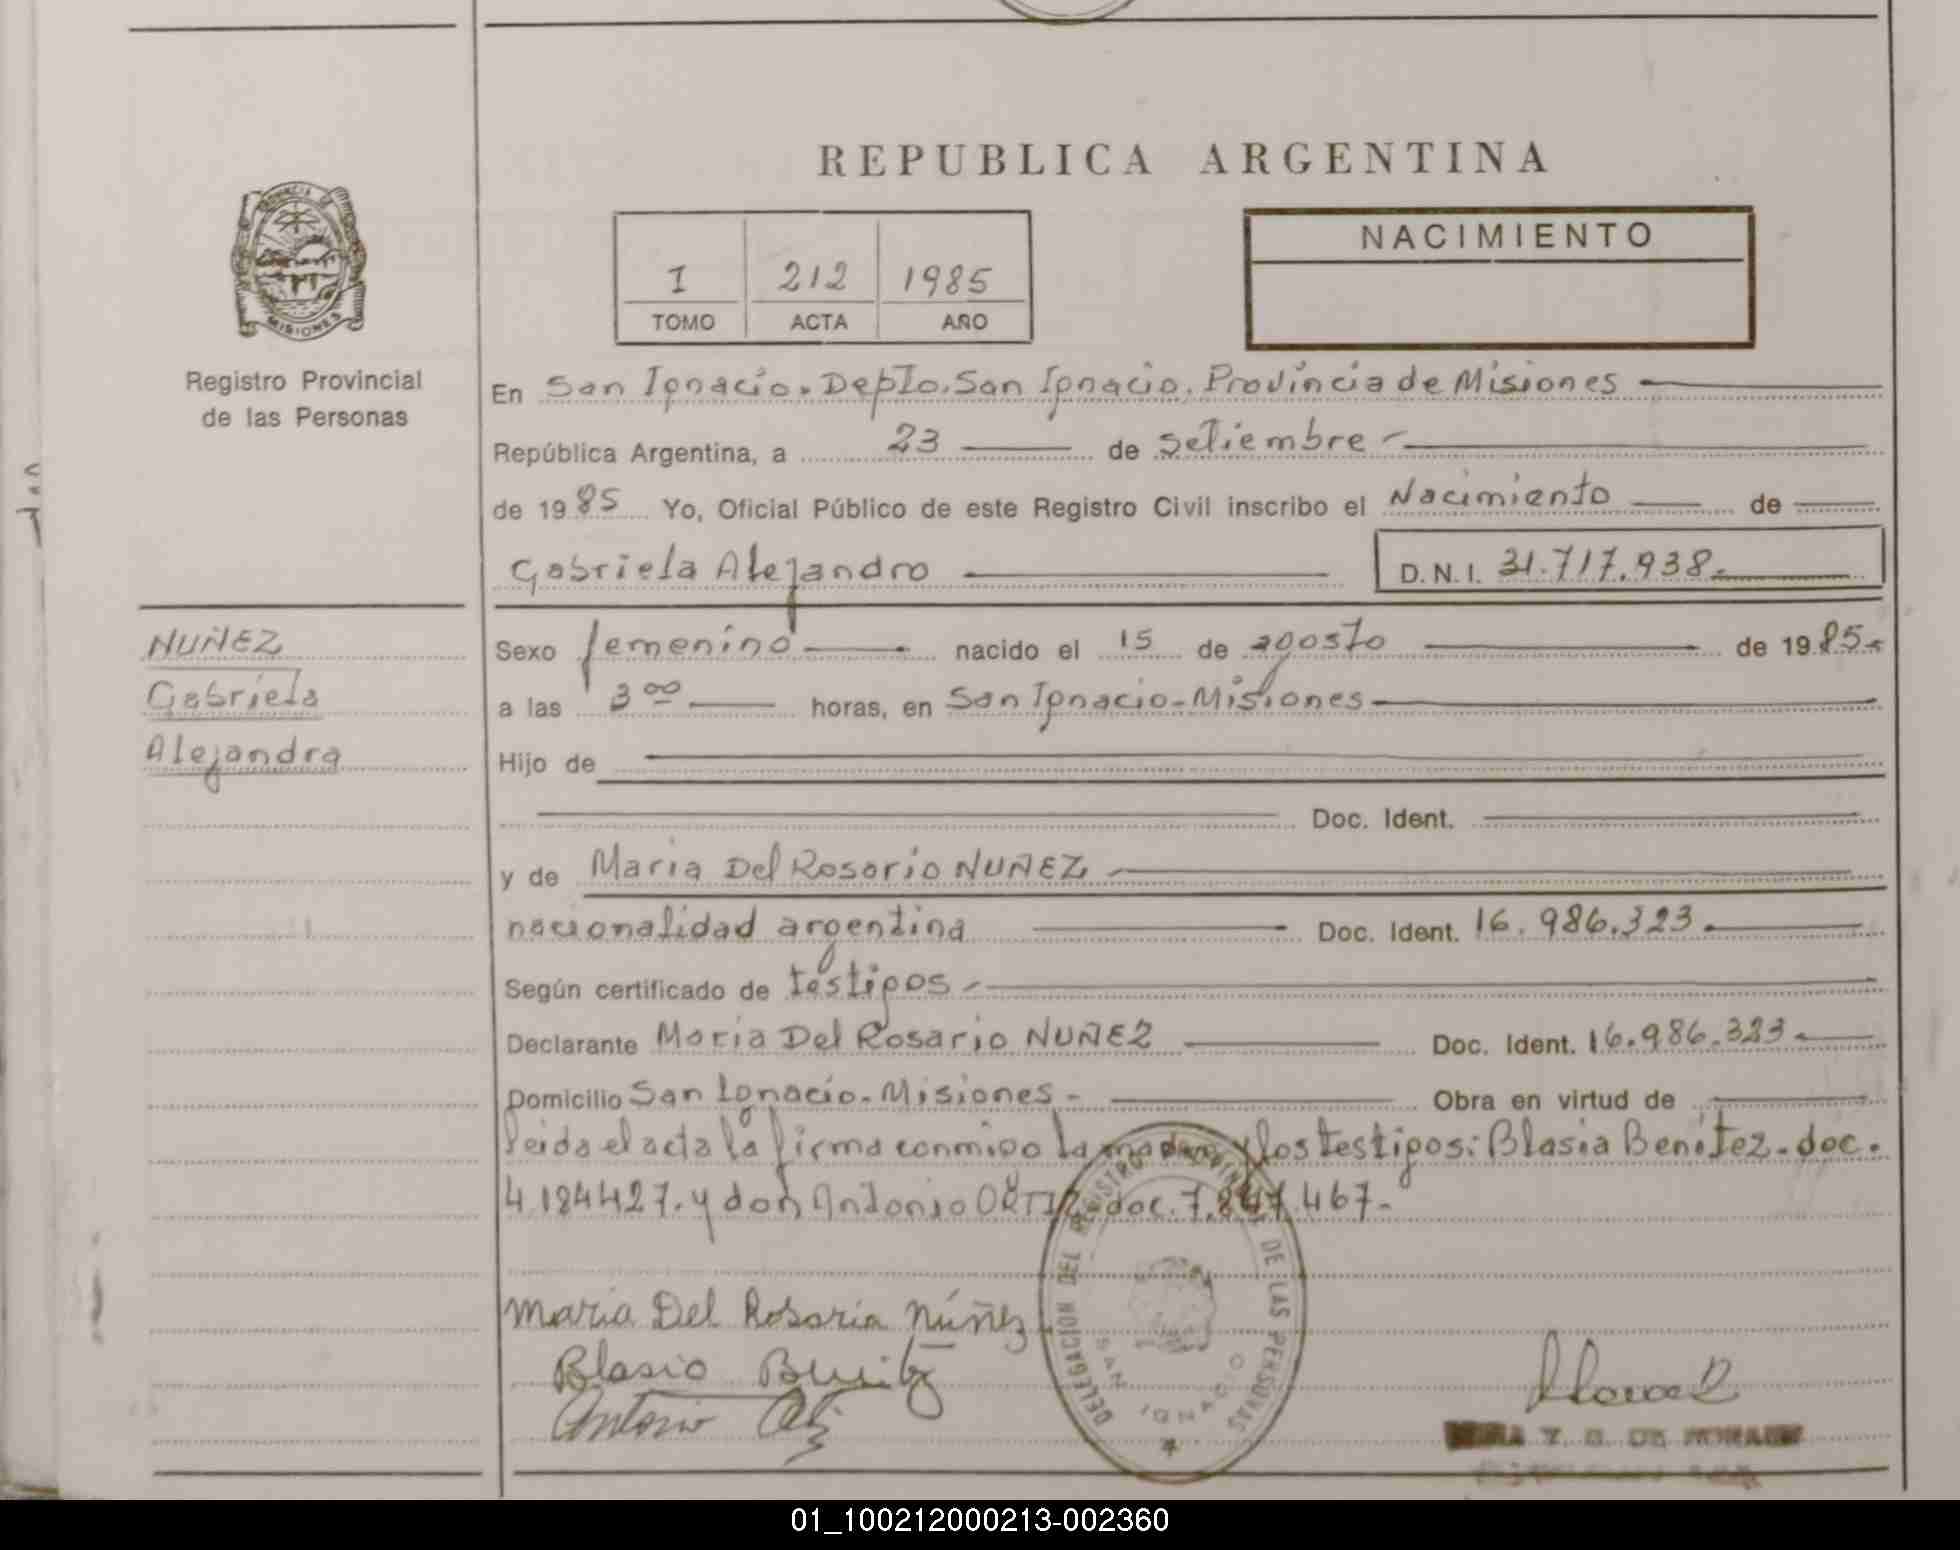 REPUBLICA ARGENTINA
PROVINCIA DE
MISIONES
Registro Provincial
de las Personas
I 212 1985
TOMO ACTA AÑO
NACIMIENTO
En San Ignacio. Depto. San Ignacio. Provincia de Misiones
República Argentina, a 23 de Setiembre
de 1985 Yo, Oficial Público de este Registro Civil inscribo el Nacimiento de
Gabriela Alejandro D.N.I. 31.717.938.
NUÑEZ
Gabriela
Alejandra
Sexo femenino nacido el 15 de agosto de 1985.
a las 3 00 horas, en San Ignacio-Misiones
Hijo de
Doc. Ident.
y de Maria Del Rosario NUÑEZ
nacionalidad argentina Doc. Ident. 16.986.323.
Según certificado de testigos
Declarante Maria Del Rosario NUÑEZ Doc. Ident. 16.986.323.
Domicilio San Ignacio. Misiones - Obra en virtud de
leida el acta la firma conmigo la madre y los testigos: Blasia Benitez. doc.
4.184427. y don Antonio ORTIZ doc. 7.847.467-
Maria Del Rosario Núñez
Blasia Benitez
Antonio
DELEGACION DEL REGISTRO PROVINCIAL DE LAS PERSONAS
SAN IGNACIO
01_100212000213-002360